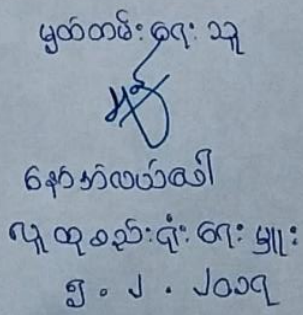 မှတ်တမ်းရေးသူ
နော်အဲလယ်ဝါ
လူထုစည်းရုံးရေးမှူး
၅.၂.၂၀၁၇